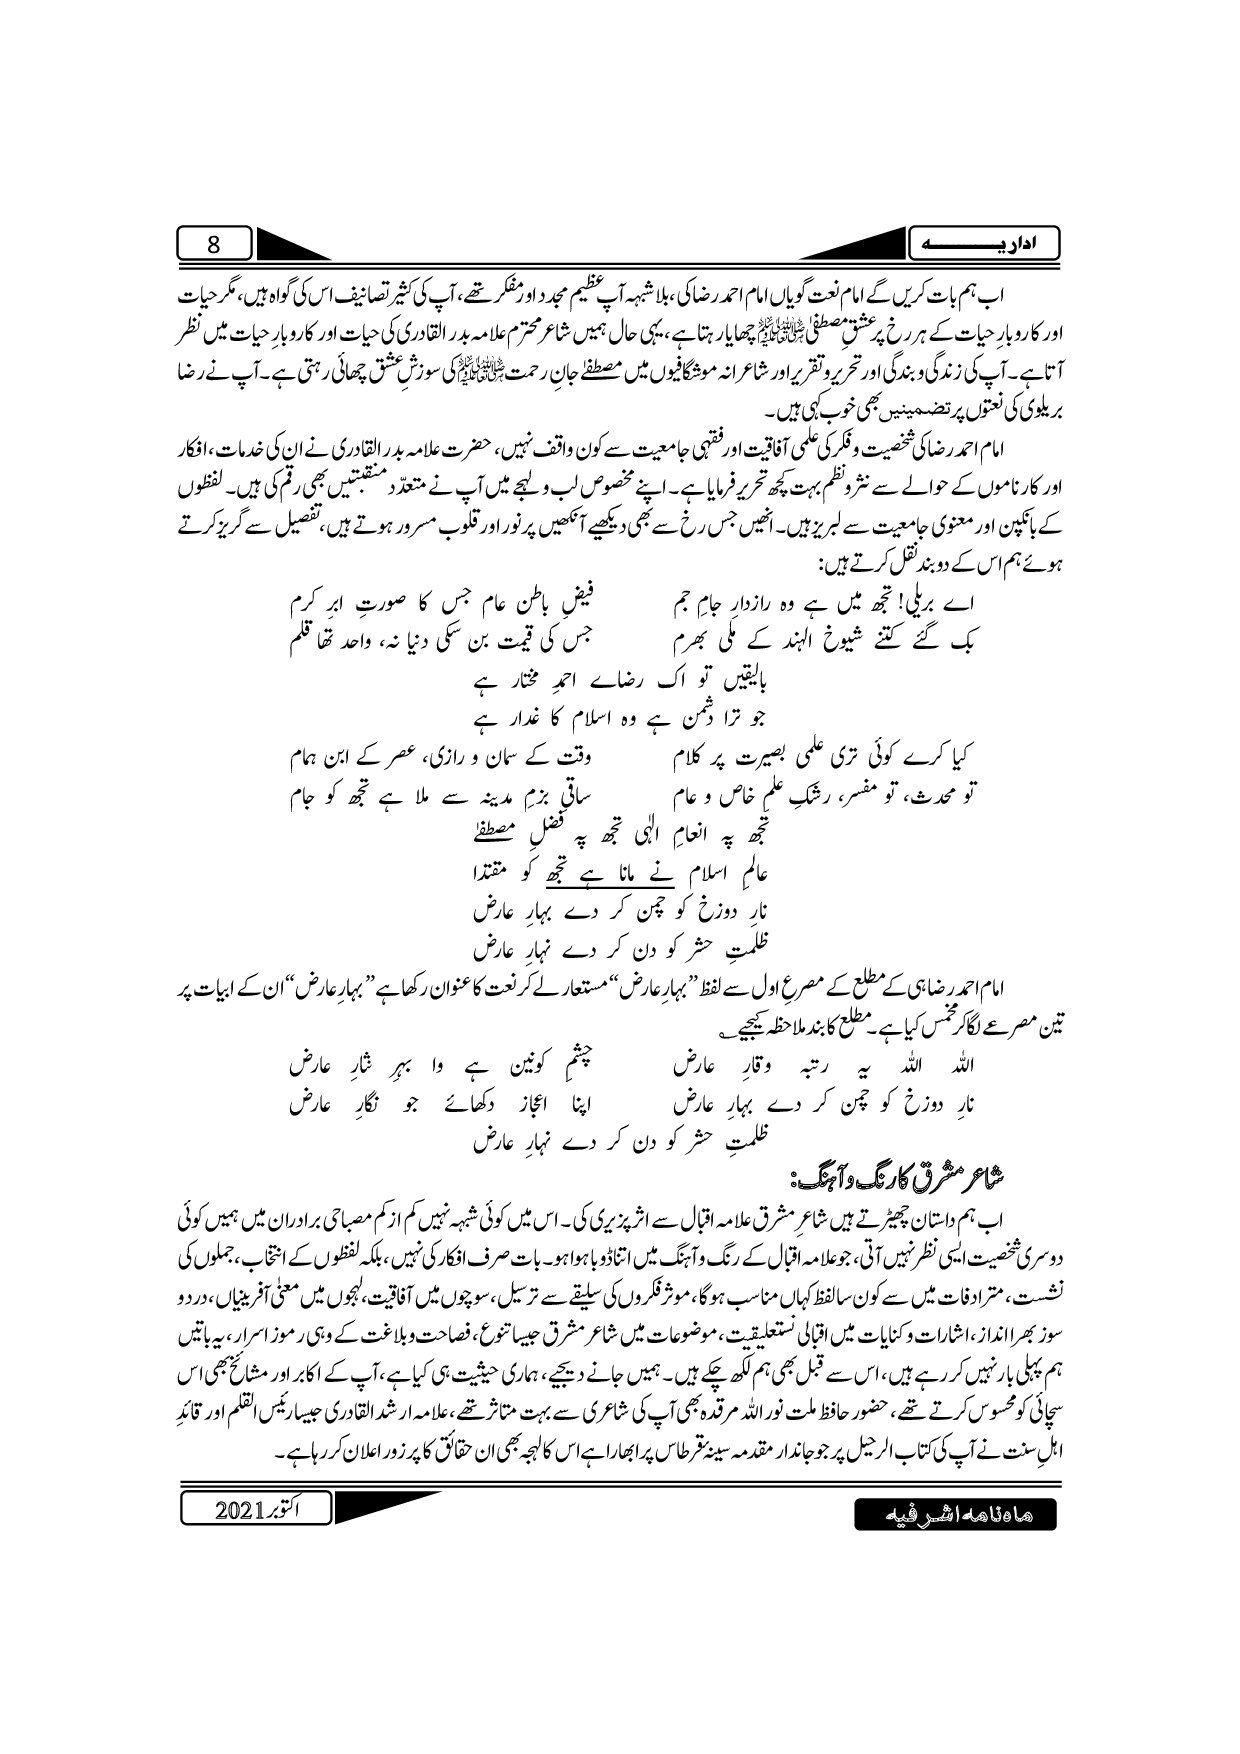 اداریـــــــہ
8
اب ہم بات کریں گے امام نعت گویاں امام احمد رضا کی، بلا شبہہ آپ عظیم مجدد اور مفکر تھے، آپ کی کثیر تصانیف اس کی گواہ ہیں، مگر حیات
اور کاروبارِ حیات کے ہر رخ پر عشقِ مصطفیٰ ﷺ چھایا رہتا ہے، یہی حال ہمیں شاعر محترم علامہ بدر القادری کی حیات اور کاروبارِ حیات میں نظر
آتا ہے۔ آپ کی زندگی و بندگی اور تحریر و تقریر اور شاعرانہ موشگافیوں میں مصطفےٰ جانِ رحمت ﷺ کی سوزشِ عشق چھائی رہتی ہے۔ آپ نے رضا
بریلوی کی نعتوں پر تضمینیں بھی خوب کہی ہیں۔
امام احمد رضا کی شخصیت و فکر کی علمی آفاقیت اور فقہی جامعیت سے کون واقف نہیں، حضرت علامہ بدر القادری نے ان کی خدمات، افکار
اور کارناموں کے حوالے سے نثر و نظم بہت کچھ تحریر فرمایا ہے۔ اپنے مخصوص لب و لہجے میں آپ نے متعدّد منقبتیں بھی رقم کی ہیں۔ لفظوں
کے بانکپن اور معنوی جامعیت سے لبریز ہیں۔ انھیں جس رخ سے بھی دیکھیے آنکھیں پر نور اور قلوب مسرور ہوتے ہیں، تفصیل سے گریز کرتے
ہوئے ہم اس کے دو بند نقل کرتے ہیں:
اے بریلی! تجھ میں ہے وہ رازدارِ جامِ جم
فیضِ باطن عام جس کا صورتِ ابرِ کرم
بک گئے کتنے شیوخ الہند کے ملکی بھرم
جس کی قیمت بن سکی دنیا نہ، واحد تھا قلم
بالیقیں تو اک رضاے احمدِ مختار ہے
جو ترا دشمن ہے وہ اسلام کا غدار ہے
کیا کرے کوئی تری علمی بصیرت پر کلام
وقت کے سمان و رازی، عصر کے ابن ہمام
تو محدث، تو مفسر، رشکِ علمِ خاص و عام
ساقیِ بزمِ مدینہ سے ملا ہے تجھ کو جام
تجھ پہ انعامِ الٰہی تجھ پہ فضلِ مصطفےٰ
عالمِ اسلام نے مانا ہے تجھ کو مقتدا
نارِ دوزخ کو چمن کر دے بہارِ عارض
ظلمتِ حشر کو دن کر دے نہارِ عارض
امام احمد رضا ہی کے مطلع کے مصرعِ اول سے لفظ ”بہارِ عارض“ مستعار لے کر نعت کا عنوان رکھا ہے ”بہارِ عارض“ ان کے ابیات پر
تین مصرعے لگا کر مخمس کیا ہے۔ مطلع کا بند ملاحظہ کیجیے؎
اللہ اللہ یہ رتبہ وقارِ عارض
چشمِ کونین ہے وا بہرِ نثارِ عارض
نارِ دوزخ کو چمن کر دے بہارِ عارض
اپنا اعجاز دکھائے جو نگارِ عارض
ظلمتِ حشر کو دن کر دے نہارِ عارض
شاعر مشرق کا رنگ و آہنگ:
اب ہم داستان چھیڑتے ہیں شاعرِ مشرق علامہ اقبال سے اثر پزیری کی۔ اس میں کوئی شبہہ نہیں کم از کم مصباحی برادران میں ہمیں کوئی
دوسری شخصیت ایسی نظر نہیں آتی، جو علامہ اقبال کے رنگ و آہنگ میں اتنا ڈوبا ہوا ہو۔ بات صرف افکار کی نہیں، بلکہ لفظوں کے انتخاب، جملوں کی
نشست، مترادفات میں سے کون سا لفظ کہاں مناسب ہوگا، موثر فکروں کی سلیقے سے ترسیل، سوچوں میں آفاقیت، لہجوں میں معنٰی آفرینیاں، درد و
سوز بھرا انداز، اشارات و کنایات میں اقبالی نستعلیقیت، موضوعات میں شاعر مشرق جیسا تنوع، فصاحت و بلاغت کے وہی رموز اسرار، یہ باتیں
ہم پہلی بار نہیں کر رہے ہیں، اس سے قبل بھی ہم لکھ چکے ہیں۔ ہمیں جانے دیجیے، ہماری حیثیت ہی کیا ہے، آپ کے اکابر اور مشائخ بھی اس
سچائی کو محسوس کرتے تھے، حضور حافظ ملت نور اللہ مرقدہ بھی آپ کی شاعری سے بہت متاثر تھے، علامہ ارشد القادری جیسا رئیس القلم اور قائدِ
اہلِ سنت نے آپ کی کتاب الرحیل پر جو جاندار مقدمہ سینۂ قرطاس پر ابھارا ہے اس کا لہجہ بھی ان حقائق کا پر زور اعلان کر رہا ہے۔
ماہ نامہ اشرفیہ
اکتوبر 2021